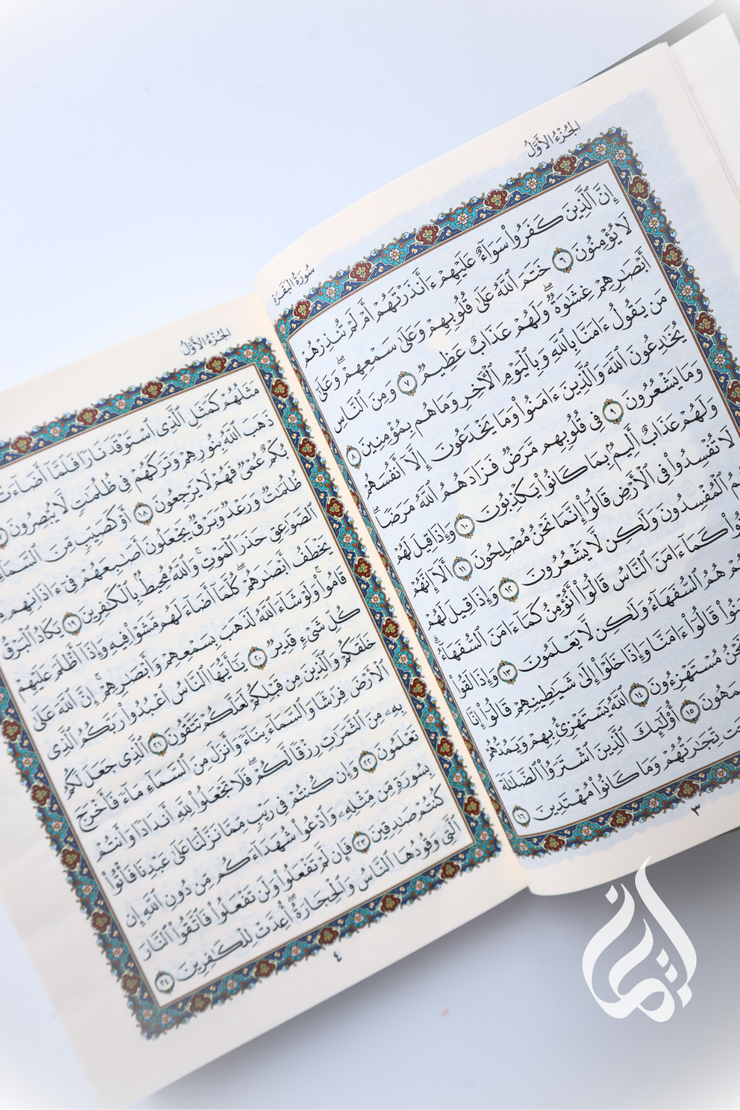 الجُزْءُ الأَوَّلُ
سُورَةُ البَقَرَةِ
إِنَّ ٱلَّذِينَ كَفَرُوا۟ سَوَآءٌ عَلَيْهِمْ ءَأَنذَرْتَهُمْ أَمْ لَمْ تُنذِرْهُمْ
لَا يُؤْمِنُونَ ٦ خَتَمَ ٱللَّهُ عَلَىٰ قُلُوبِهِمْ وَعَلَىٰ سَمْعِهِمْ ۖ وَعَلَىٰٓ
أَبْصَـٰرِهِمْ غِشَـٰوَةٌ ۖ وَلَهُمْ عَذَابٌ عَظِيمٌ ٧ وَمِنَ ٱلنَّاسِ
مَن يَقُولُ ءَامَنَّا بِٱللَّهِ وَبِٱلْيَوْمِ ٱلْـَٔاخِرِ وَمَا هُم بِمُؤْمِنِينَ ٨
يُخَـٰدِعُونَ ٱللَّهَ وَٱلَّذِينَ ءَامَنُوا۟ وَمَا يَخْدَعُونَ إِلَّآ أَنفُسَهُمْ
وَمَا يَشْعُرُونَ ٩ فِى قُلُوبِهِم مَّرَضٌ فَزَادَهُمُ ٱللَّهُ مَرَضًا ۖ
وَلَهُمْ عَذَابٌ أَلِيمٌۢ بِمَا كَانُوا۟ يَكْذِبُونَ ١٠ وَإِذَا قِيلَ لَهُمْ
لَا تُفْسِدُوا۟ فِى ٱلْأَرْضِ قَالُوٓا۟ إِنَّمَا نَحْنُ مُصْلِحُونَ ١١ أَلَآ إِنَّهُمْ
ٱلْمُفْسِدُونَ وَلَـٰكِن لَّا يَشْعُرُونَ ١٢ وَإِذَا قِيلَ لَهُمْ
كَمَآ ءَامَنَ ٱلنَّاسُ قَالُوٓا۟ أَنُؤْمِنُ كَمَآ ءَامَنَ ٱلسُّفَهَآءُ ۗ
هُمُ ٱلسُّفَهَآءُ وَلَـٰكِن لَّا يَعْلَمُونَ ١٣ وَإِذَا لَقُوا۟
قَالُوٓا۟ ءَامَنَّا وَإِذَا خَلَوْا۟ إِلَىٰ شَيَـٰطِينِهِمْ قَالُوٓا۟ إِنَّا
مُسْتَهْزِءُونَ ١٤ ٱللَّهُ يَسْتَهْزِئُ بِهِمْ وَيَمُدُّهُمْ
١٥ أُو۟لَـٰٓئِكَ ٱلَّذِينَ ٱشْتَرَوُا۟ ٱلضَّلَـٰلَةَ
تِّجَـٰرَتُهُمْ وَمَا كَانُوا۟ مُهْتَدِينَ ١٦
٣
الجُزْءُ الأَوَّلُ
مَثَلُهُمْ كَمَثَلِ ٱلَّذِى ٱسْتَوْقَدَ نَارًا فَلَمَّآ أَضَآءَتْ
ذَهَبَ ٱللَّهُ بِنُورِهِمْ وَتَرَكَهُمْ فِى ظُلُمَـٰتٍ لَّا يُبْصِرُونَ
بُكْمٌ عُمْىٌ فَهُمْ لَا يَرْجِعُونَ ١٨ أَوْ كَصَيِّبٍ مِّنَ ٱلسَّمَآءِ
ظُلُمَـٰتٌ وَرَعْدٌ وَبَرْقٌ يَجْعَلُونَ أَصَـٰبِعَهُمْ فِىٓ ءَاذَانِهِم
ٱلصَّوَٰعِقِ حَذَرَ ٱلْمَوْتِ ۚ وَٱللَّهُ مُحِيطٌۢ بِٱلْكَـٰفِرِينَ ١٩ يَكَادُ ٱلْبَرْقُ
يَخْطَفُ أَبْصَـٰرَهُمْ ۖ كُلَّمَآ أَضَآءَ لَهُم مَّشَوْا۟ فِيهِ وَإِذَآ أَظْلَمَ عَلَيْهِمْ
قَامُوا۟ ۚ وَلَوْ شَآءَ ٱللَّهُ لَذَهَبَ بِسَمْعِهِمْ وَأَبْصَـٰرِهِمْ ۚ إِنَّ ٱللَّهَ عَلَىٰ
كُلِّ شَىْءٍ قَدِيرٌ ٢٠ يَـٰٓأَيُّهَا ٱلنَّاسُ ٱعْبُدُوا۟ رَبَّكُمُ ٱلَّذِى
خَلَقَكُمْ وَٱلَّذِينَ مِن قَبْلِكُمْ لَعَلَّكُمْ تَتَّقُونَ ٢١ ٱلَّذِى جَعَلَ لَكُمُ
ٱلْأَرْضَ فِرَٰشًا وَٱلسَّمَآءَ بِنَآءً وَأَنزَلَ مِنَ ٱلسَّمَآءِ مَآءً فَأَخْرَجَ
بِهِۦ مِنَ ٱلثَّمَرَٰتِ رِزْقًا لَّكُمْ ۖ فَلَا تَجْعَلُوا۟ لِلَّهِ أَندَادًا وَأَنتُمْ
تَعْلَمُونَ ٢٢ وَإِن كُنتُمْ فِى رَيْبٍ مِّمَّا نَزَّلْنَا عَلَىٰ عَبْدِنَا فَأْتُوا۟
بِسُورَةٍ مِّن مِّثْلِهِۦ وَٱدْعُوا۟ شُهَدَآءَكُم مِّن دُونِ ٱللَّهِ إِن
كُنتُمْ صَـٰدِقِينَ ٢٣ فَإِن لَّمْ تَفْعَلُوا۟ وَلَن تَفْعَلُوا۟ فَٱتَّقُوا۟ ٱلنَّارَ
ٱلَّتِى وَقُودُهَا ٱلنَّاسُ وَٱلْحِجَارَةُ ۖ أُعِدَّتْ لِلْكَـٰفِرِينَ ٢٤
٤